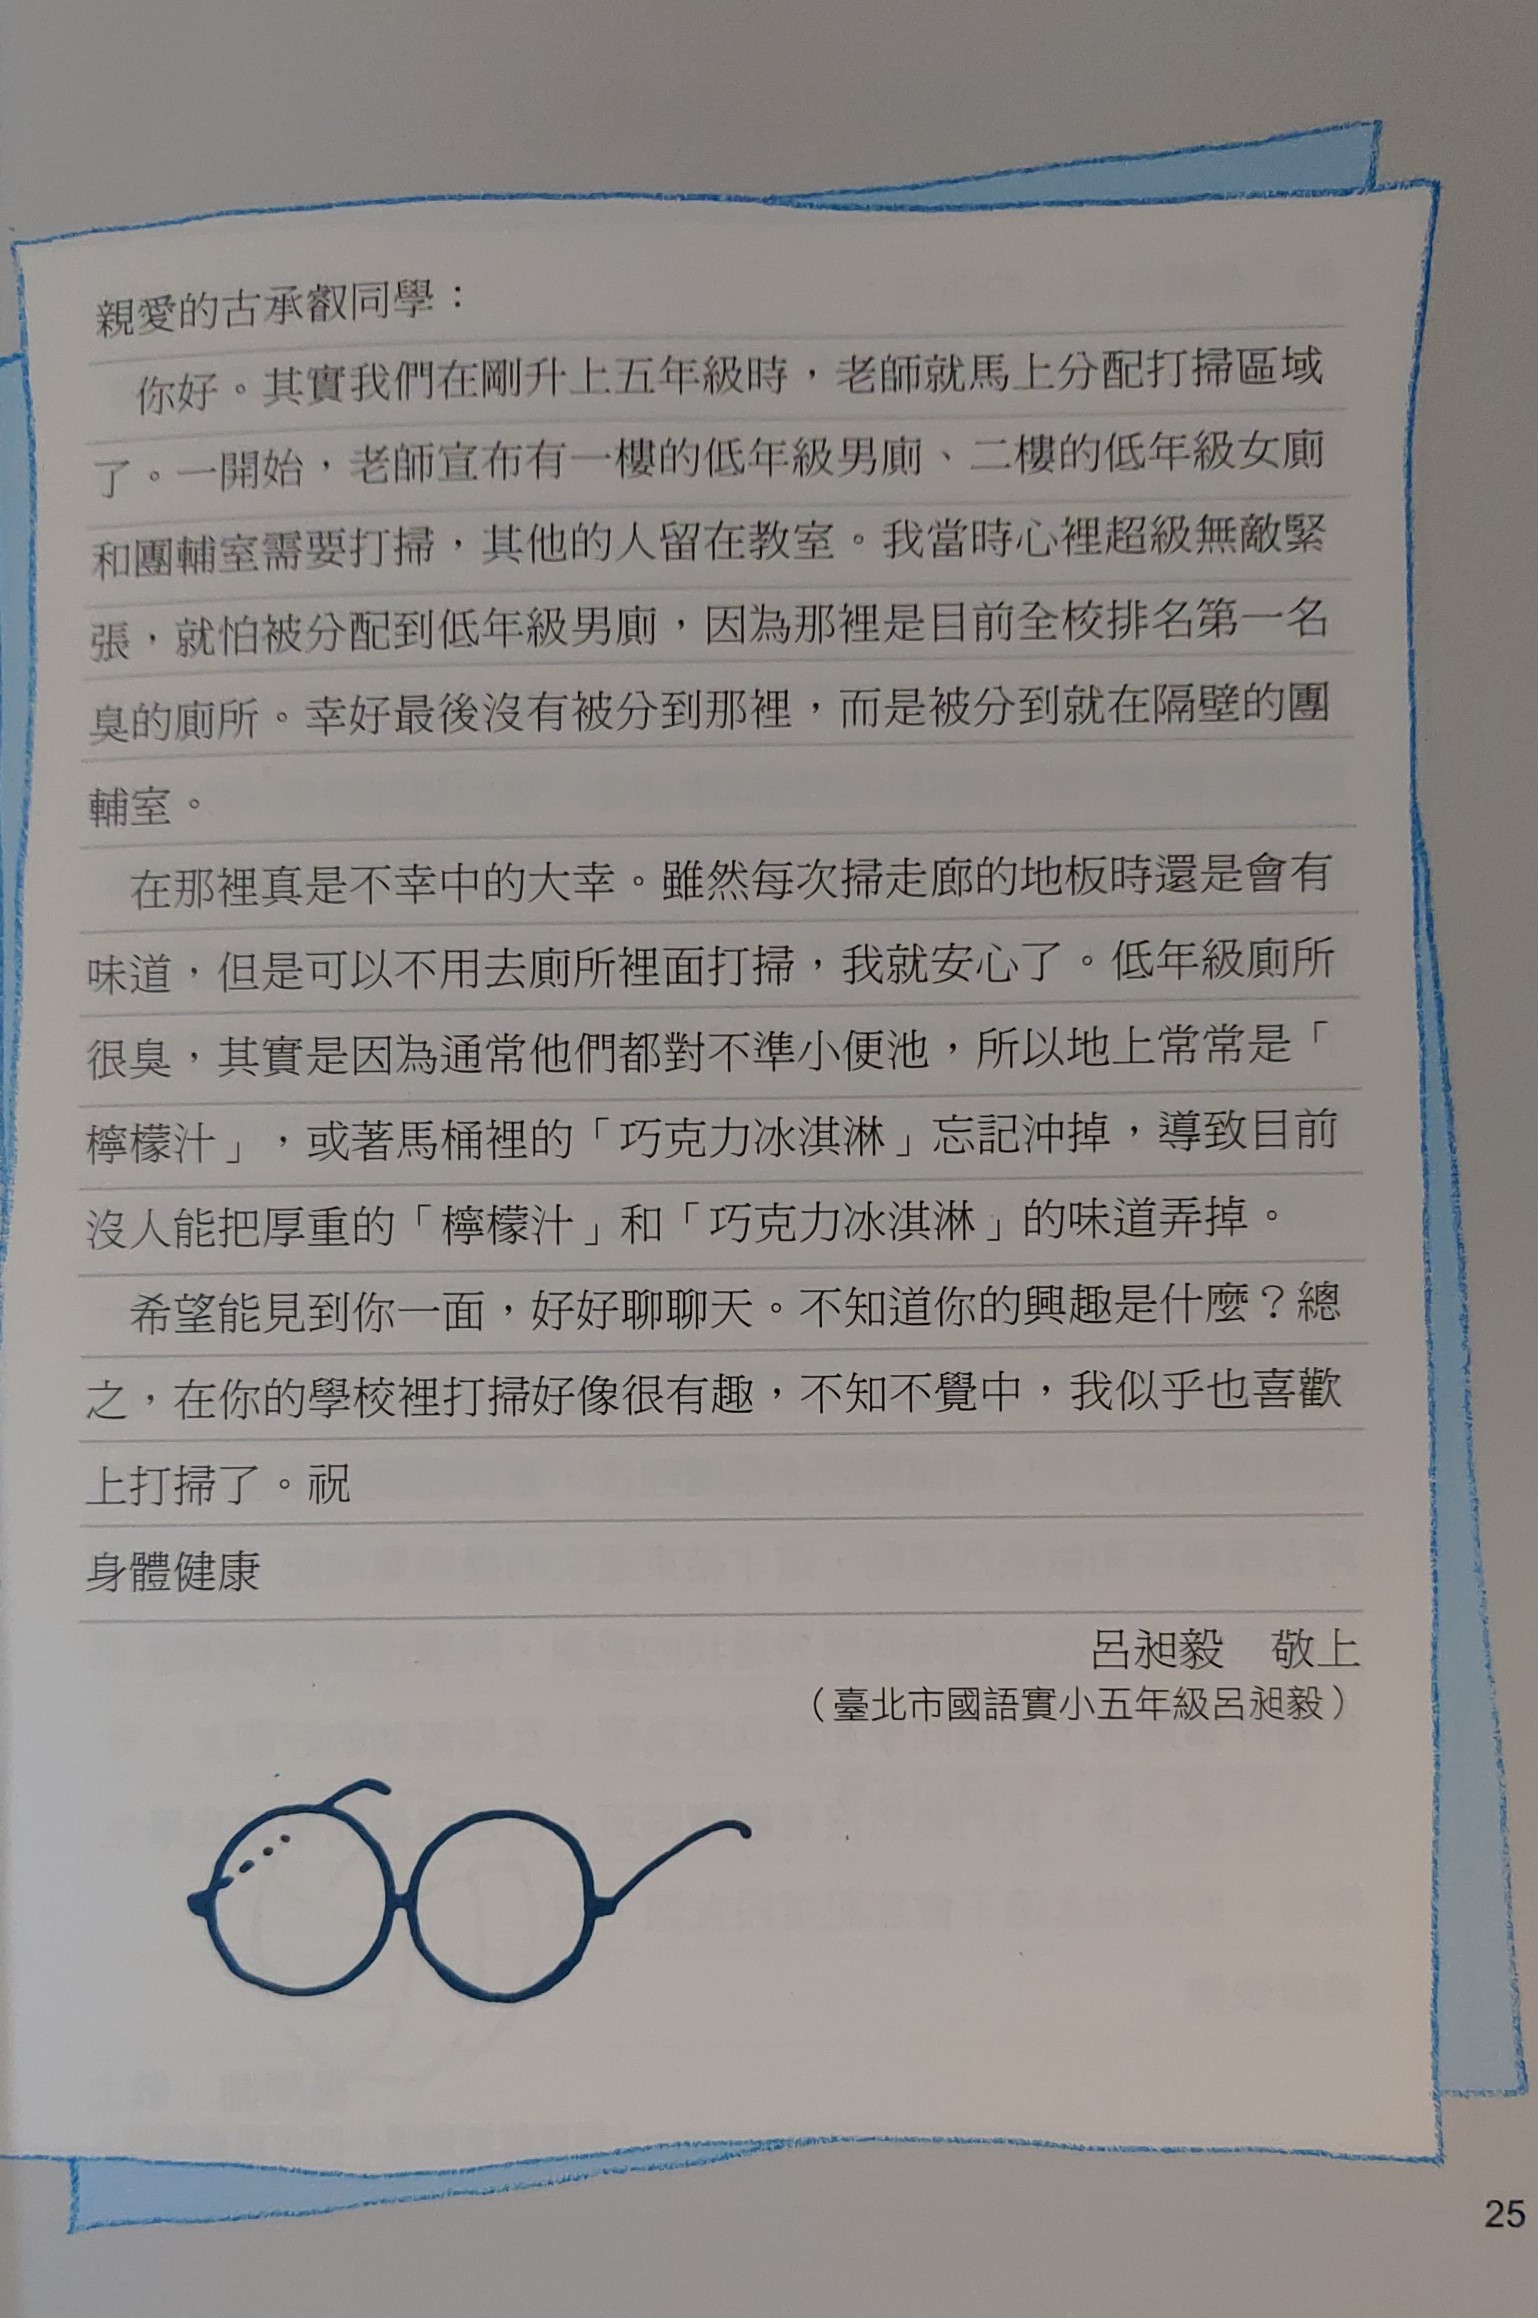 親愛的古承叡同學：
你好。其實我們在剛升上五年級時，老師就馬上分配打掃區域
了。一開始，老師宣布有一樓的低年級男廁、二樓的低年級女廁
和團輔室需要打掃，其他的人留在教室。我當時心裡超級無敵緊
張，就怕被分配到低年級男廁，因為那裡是目前全校排名第一名
臭的廁所。幸好最後沒有被分到那裡，而是被分到就在隔壁的團
輔室。
在那裡真是不幸中的大幸。雖然每次掃走廊的地板時還是會有
味道，但是可以不用去廁所裡面打掃，我就安心了。低年級廁所
很臭，其實是因為通常他們都對不準小便池，所以地上常常是「
檸檬汁」，或著馬桶裡的「巧克力冰淇淋」忘記沖掉，導致目前
沒人能把厚重的「檸檬汁」和「巧克力冰淇淋」的味道弄掉。
希望能見到你一面，好好聊聊天。不知道你的興趣是什麼？總
之，在你的學校裡打掃好像很有趣，不知不覺中，我似乎也喜歡
上打掃了。祝
身體健康
呂昶毅　敬上
（臺北市國語實小五年級呂昶毅）
25